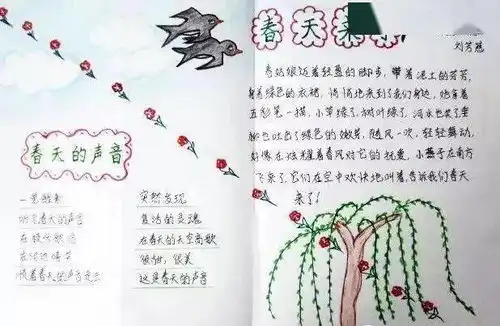 春天的声音
一觉醒来
听见春天的声音
在枝头歌唱
顺着春天的声音走去
突然发现
复活的灵魂
在春天的天空高歌
很甜，很美
这是春天的声音
春天来了
刘芳慈
春姑娘迈着轻盈的脚步，带着泥土的芳香，
身着绿色的衣裙，悄悄地来到了我们身边，她拿着
五彩笔一描，小草绿了，树叶绿了，河水也笑了垂
柳也吐出了绿色的嫩芽，随风一吹，轻轻舞动，
好像在炫耀着春风对它的抚爱，小燕子在南方
飞来了，它们在空中欢快地叫着，告诉我们春天
来了！